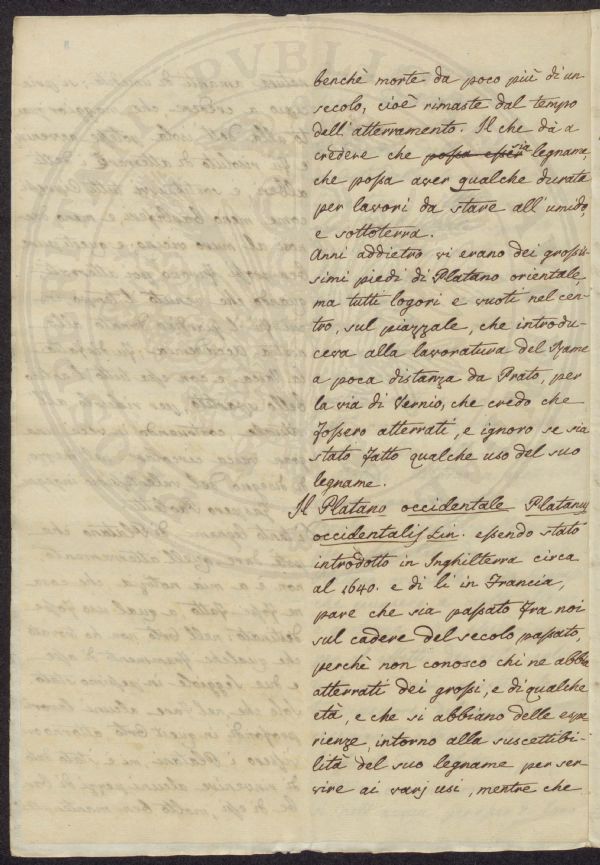 benchè morte da poco più di un
secolo, cioè rimaste dal tempo
dell'atterramento. Il che dà a
credere che possa esser sia legname,
che possa aver qualche durata
per lavori da stare all'umido,
e sottoterra.
Anni addietro vi erano dei grossis-
simi piedi di Platano orientale,
ma tutti logori e vuoti nel cen-
tro, sul piazzale, che introdu-
ceva alla lavoratura del Rame
a poca distanza da Prato, per
la via di Vernio, che credo che
fossero atterrati, e ignoro se sia
stato fatto qualche uso del suo
legname.
Il Platano occidentale Platanus
occidentalis Lin. essendo stato
introdotto in Inghilterra circa
al 1640. e di li in Francia,
pare che sia passato fra noi
sul cadere del secolo passato,
perchè non conosco chi ne abbia
atterrati dei grossi, e di qualche
età, e che si abbiano delle espe-
rienze, intorno alla suscettibi-
lità del suo legname per ser-
vire ai varj usi, mentre che